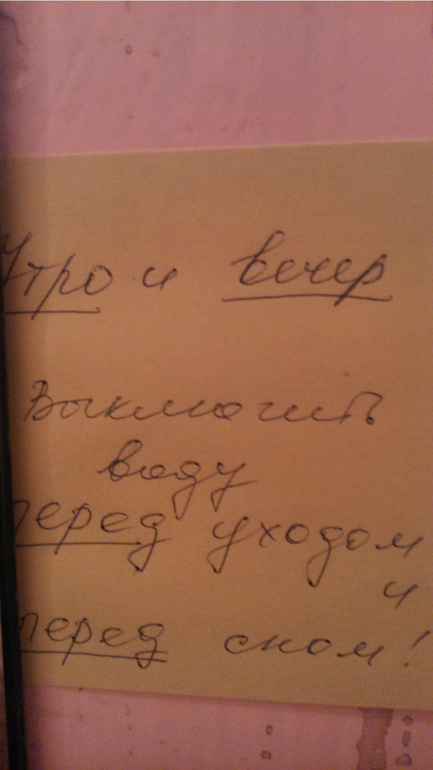 Утро и вечер
Выключить
воду
перед уходом
и
перед сном!